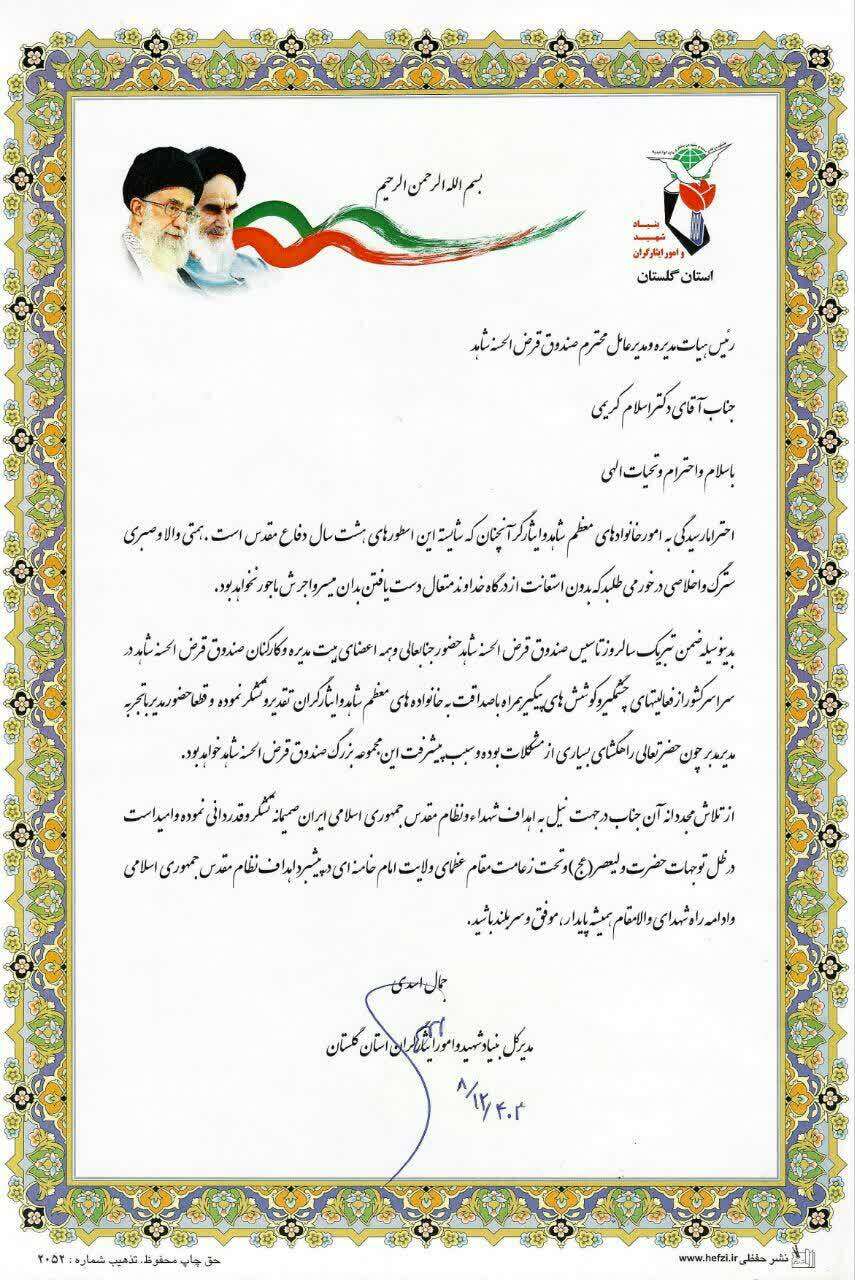 بسم الله الرحمن الرحیم
بنیاد
شهید
و امور ایثارگران
استان گلستان
رئیس هیات مدیره و مدیرعامل محترم صندوق قرض الحسنه شاهد
جناب آقای دکتر اسلام کریمی
باسلام و احترام و تحیات الهی
احتراما رسیدگی به امور خانوادهای معظم شاهد و ایثارگر آنچنان که شایسته این اسطورهای هشت سال دفاع مقدس است . همتی والا و صبری
سترگ و اخلاصی در خور می طلبد که بدون استعانت از درگاه خداوند متعال دست یافتن بدان میسر و اجرش ماجور نخواهد بود .
بدینوسیله ضمن تبریک سالروز تاسیس صندوق قرض الحسنه شاهد حضور جنابعالی و همه اعضای هیت مدیره و کارکنان صندوق قرض الحسنه شاهد در
سراسر کشور از فعالیتهای چشمگیر و کوشش های پیگیر همراه با صداقت به خانواده های معظم شاهد و ایثارگران تقدیر و تشکر نموده و قطعا حضور مدیر با تجربه
مدیر مدبر چون حضرتعالی راهگشای بسیاری از مشکلات بوده و سبب پیشرفت این مجموعه بزرگ صندوق قرض الحسنه شاهد خواهد بود .
از تلاش مجددانه آن جناب در جهت نیل به اهداف شهداء و نظام مقدس جمهوری اسلامی ایران صمیمانه تشکر و قدردانی نموده و امید است
در ظل توجهات حضرت ولیعصر (عج) و تحت زعامت مقام عظمای ولایت امام خامنه ای در پیشبرد اهداف نظام مقدس جمهوری اسلامی
و ادامه راه شهدای والا مقام همیشه پایدار ، موفق و سربلند باشید .
جمال اسدی
مدیرکل بنیاد شهید و امور ایثارگران استان گلستان
۸/۱۲/۴۰۲
نشر حفظی www.hefzi.ir
حق چاپ محفوظ، تذهیب شماره : ۲۰۵۲